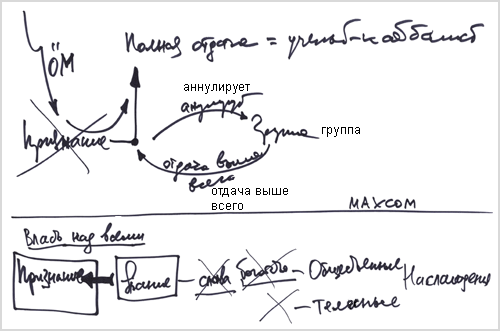 Полная отдача = ученый-каббалист
ОМ
аннулирует
аннулирует
Признание
Группа
группа
отдача выше
всего
отдача выше
всего
МАХСОМ
Власть над всеми
Признание
Знание – слава богатство – Общественные Наслаждения
– Телесные